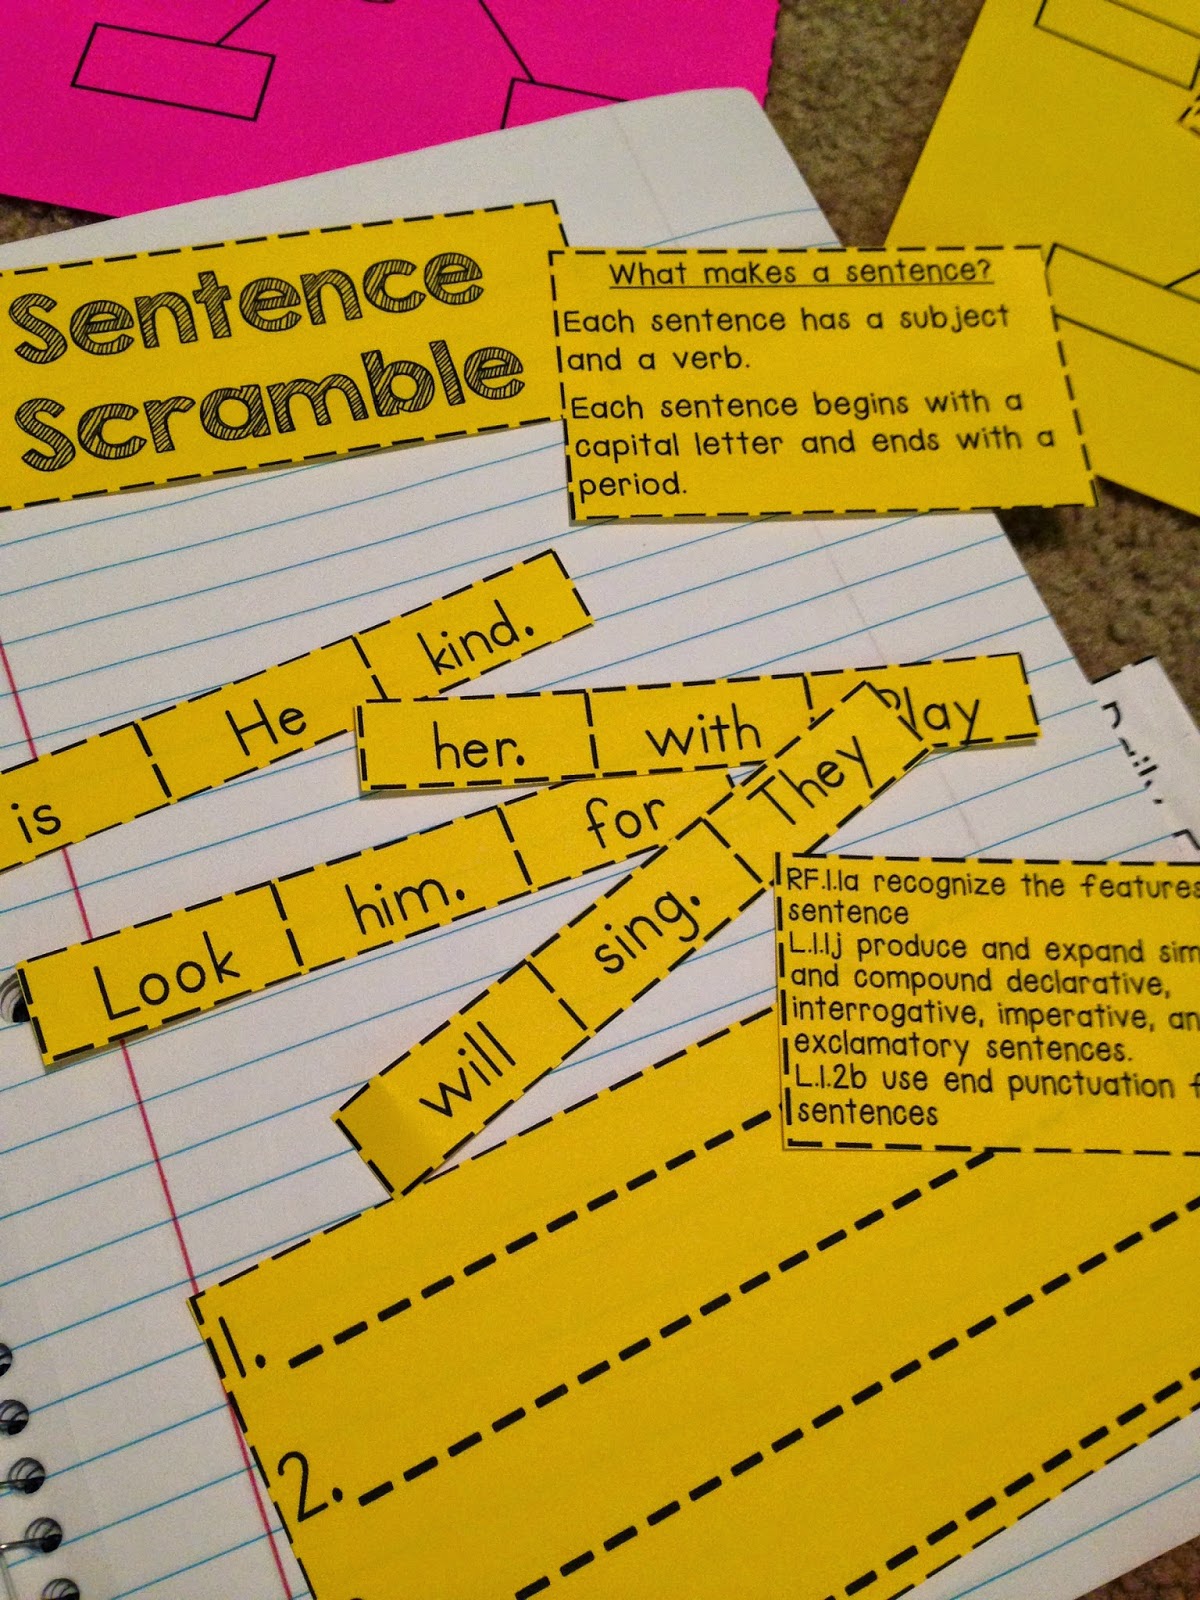 Sentence
Scramble
What makes a sentence?
Each sentence has a subject
and a verb.
Each sentence begins with a
capital letter and ends with a
period.
is He kind.
her. with Play
Look him. for
will sing. They
RF.1.1a recognize the features
sentence
L.1.1j produce and expand sim
and compound declarative,
interrogative, imperative, an
exclamatory sentences.
L.1.2b use end punctuation f
sentences
1.
2.